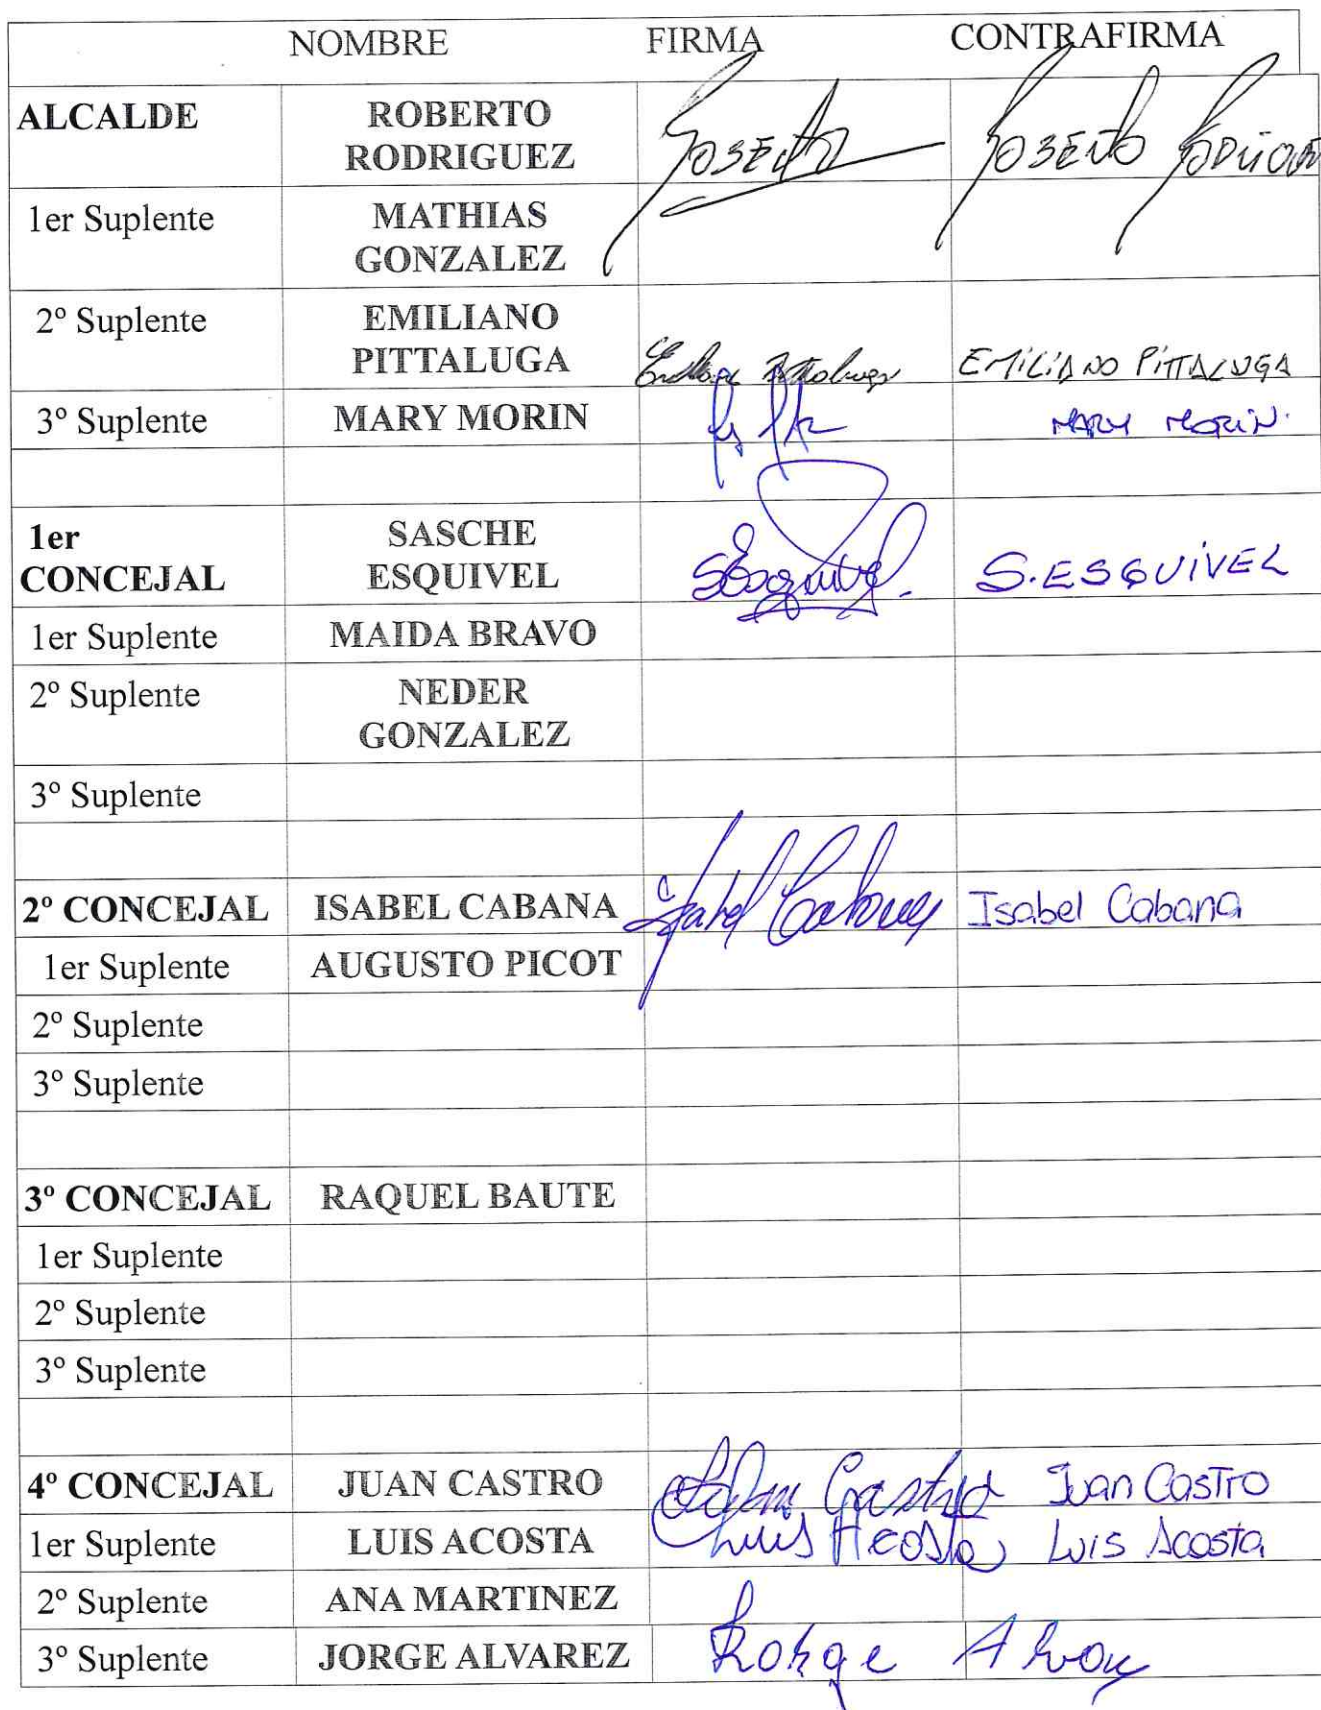 NOMBRE FIRMA CONTRAFIRMA
ALCALDE ROBERTO
RODRIGUEZ
1er Suplente MATHIAS
GONZALEZ
2º Suplente EMILIANO
PITTALUGA EMILIANO PITTALUGA
3º Suplente MARY MORIN MARY MORIN.
1er SASCHE
CONCEJAL ESQUIVEL SEsquivel. S.ESQUIVEL
1er Suplente MAIDA BRAVO
2º Suplente NEDER
GONZALEZ
3º Suplente
2º CONCEJAL ISABEL CABANA Isabel Cabana Isabel Cabana
1er Suplente AUGUSTO PICOT
2º Suplente
3º Suplente
3º CONCEJAL RAQUEL BAUTE
1er Suplente
2º Suplente
3º Suplente
4º CONCEJAL JUAN CASTRO Castro Juan Castro
1er Suplente LUIS ACOSTA Luis Acosta Luis Acosta
2º Suplente ANA MARTINEZ
3º Suplente JORGE ALVAREZ Jorge